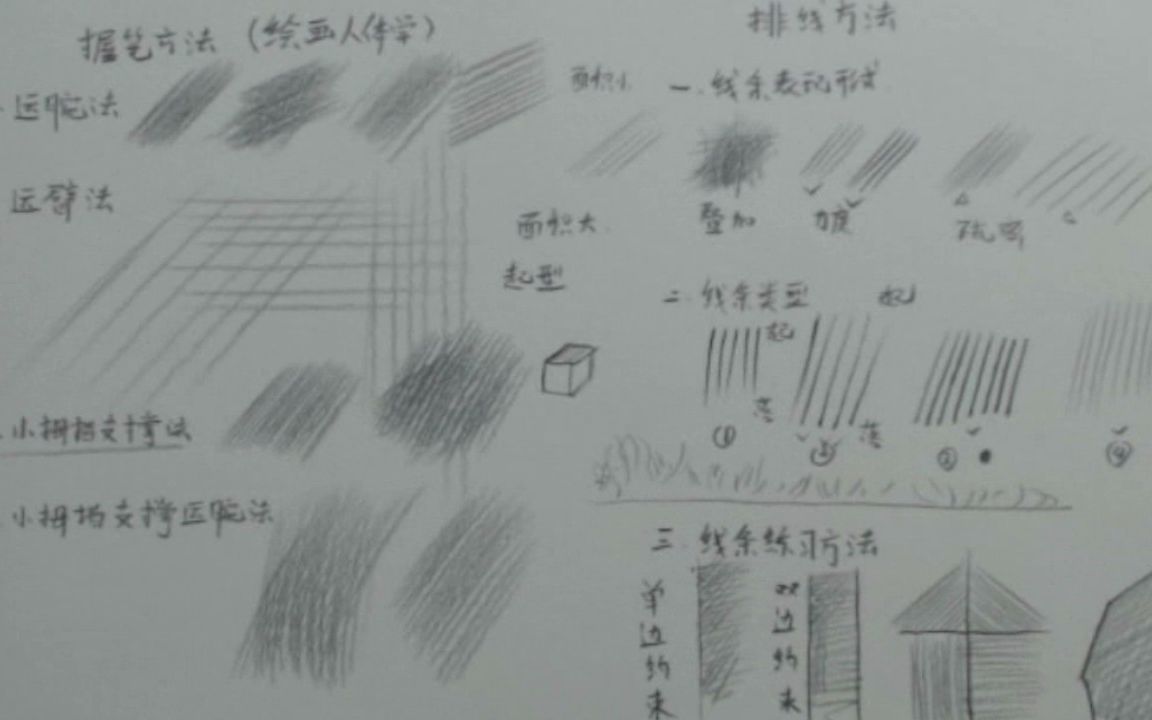 握笔方法（绘画人体学）
运腕法
面积小
运臂法
面积大
起型
小拇指支撑法
小拇指支撑运腕法
排线方法
一.线条表现形式
叠加
力度
疏密
二.线条类型
起
起
落
落
①
②
③
④
三.线条练习方法
单边约束
双边约束